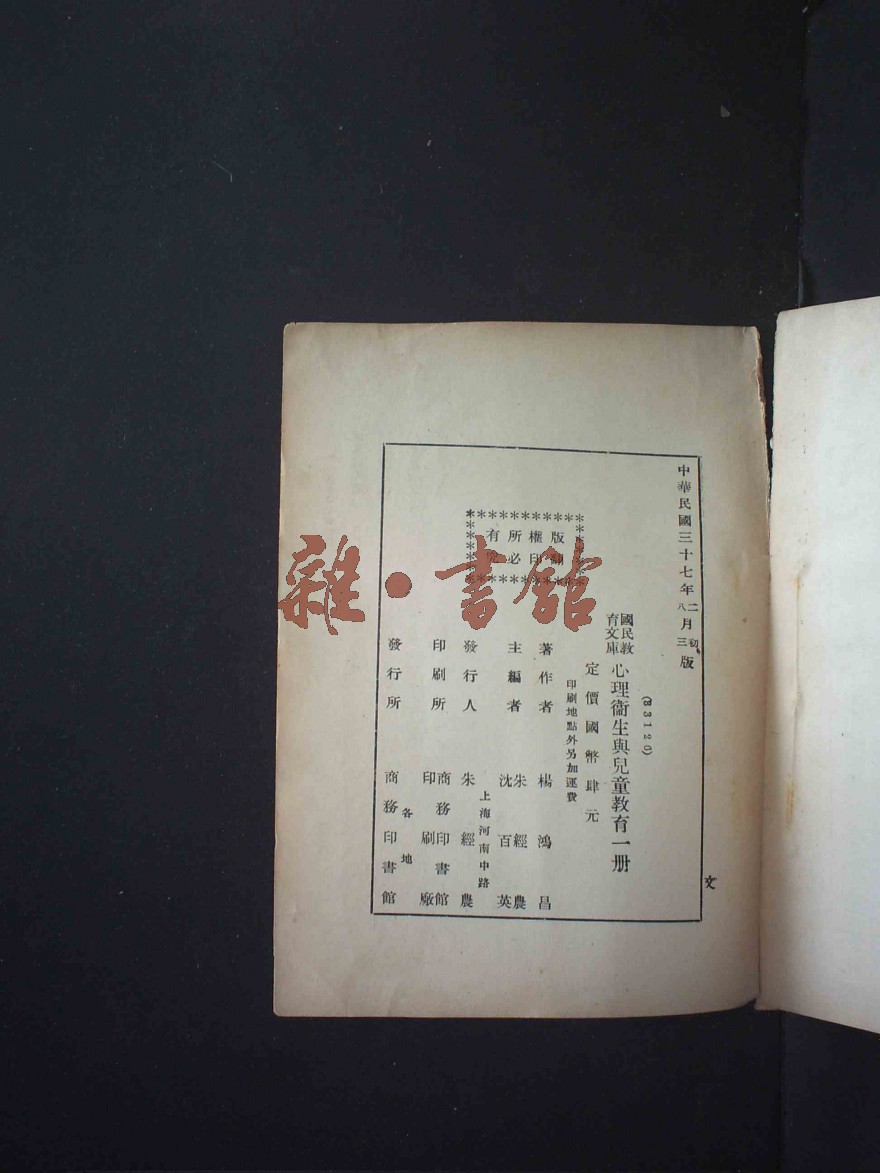 中華民國三十七年二月初版
八 三
(53120)
國民教育文庫
心理衞生與兒童教育一册
定價國幣肆元
印刷地點外另加運費
版權所有
翻印必究
著作者 楊鴻昌
主編者 朱經農 沈百英
發行人 朱經農
上海河南中路
印刷所 商務印書館印刷廠
各地
發行所 商務印書館
文
雜·書館